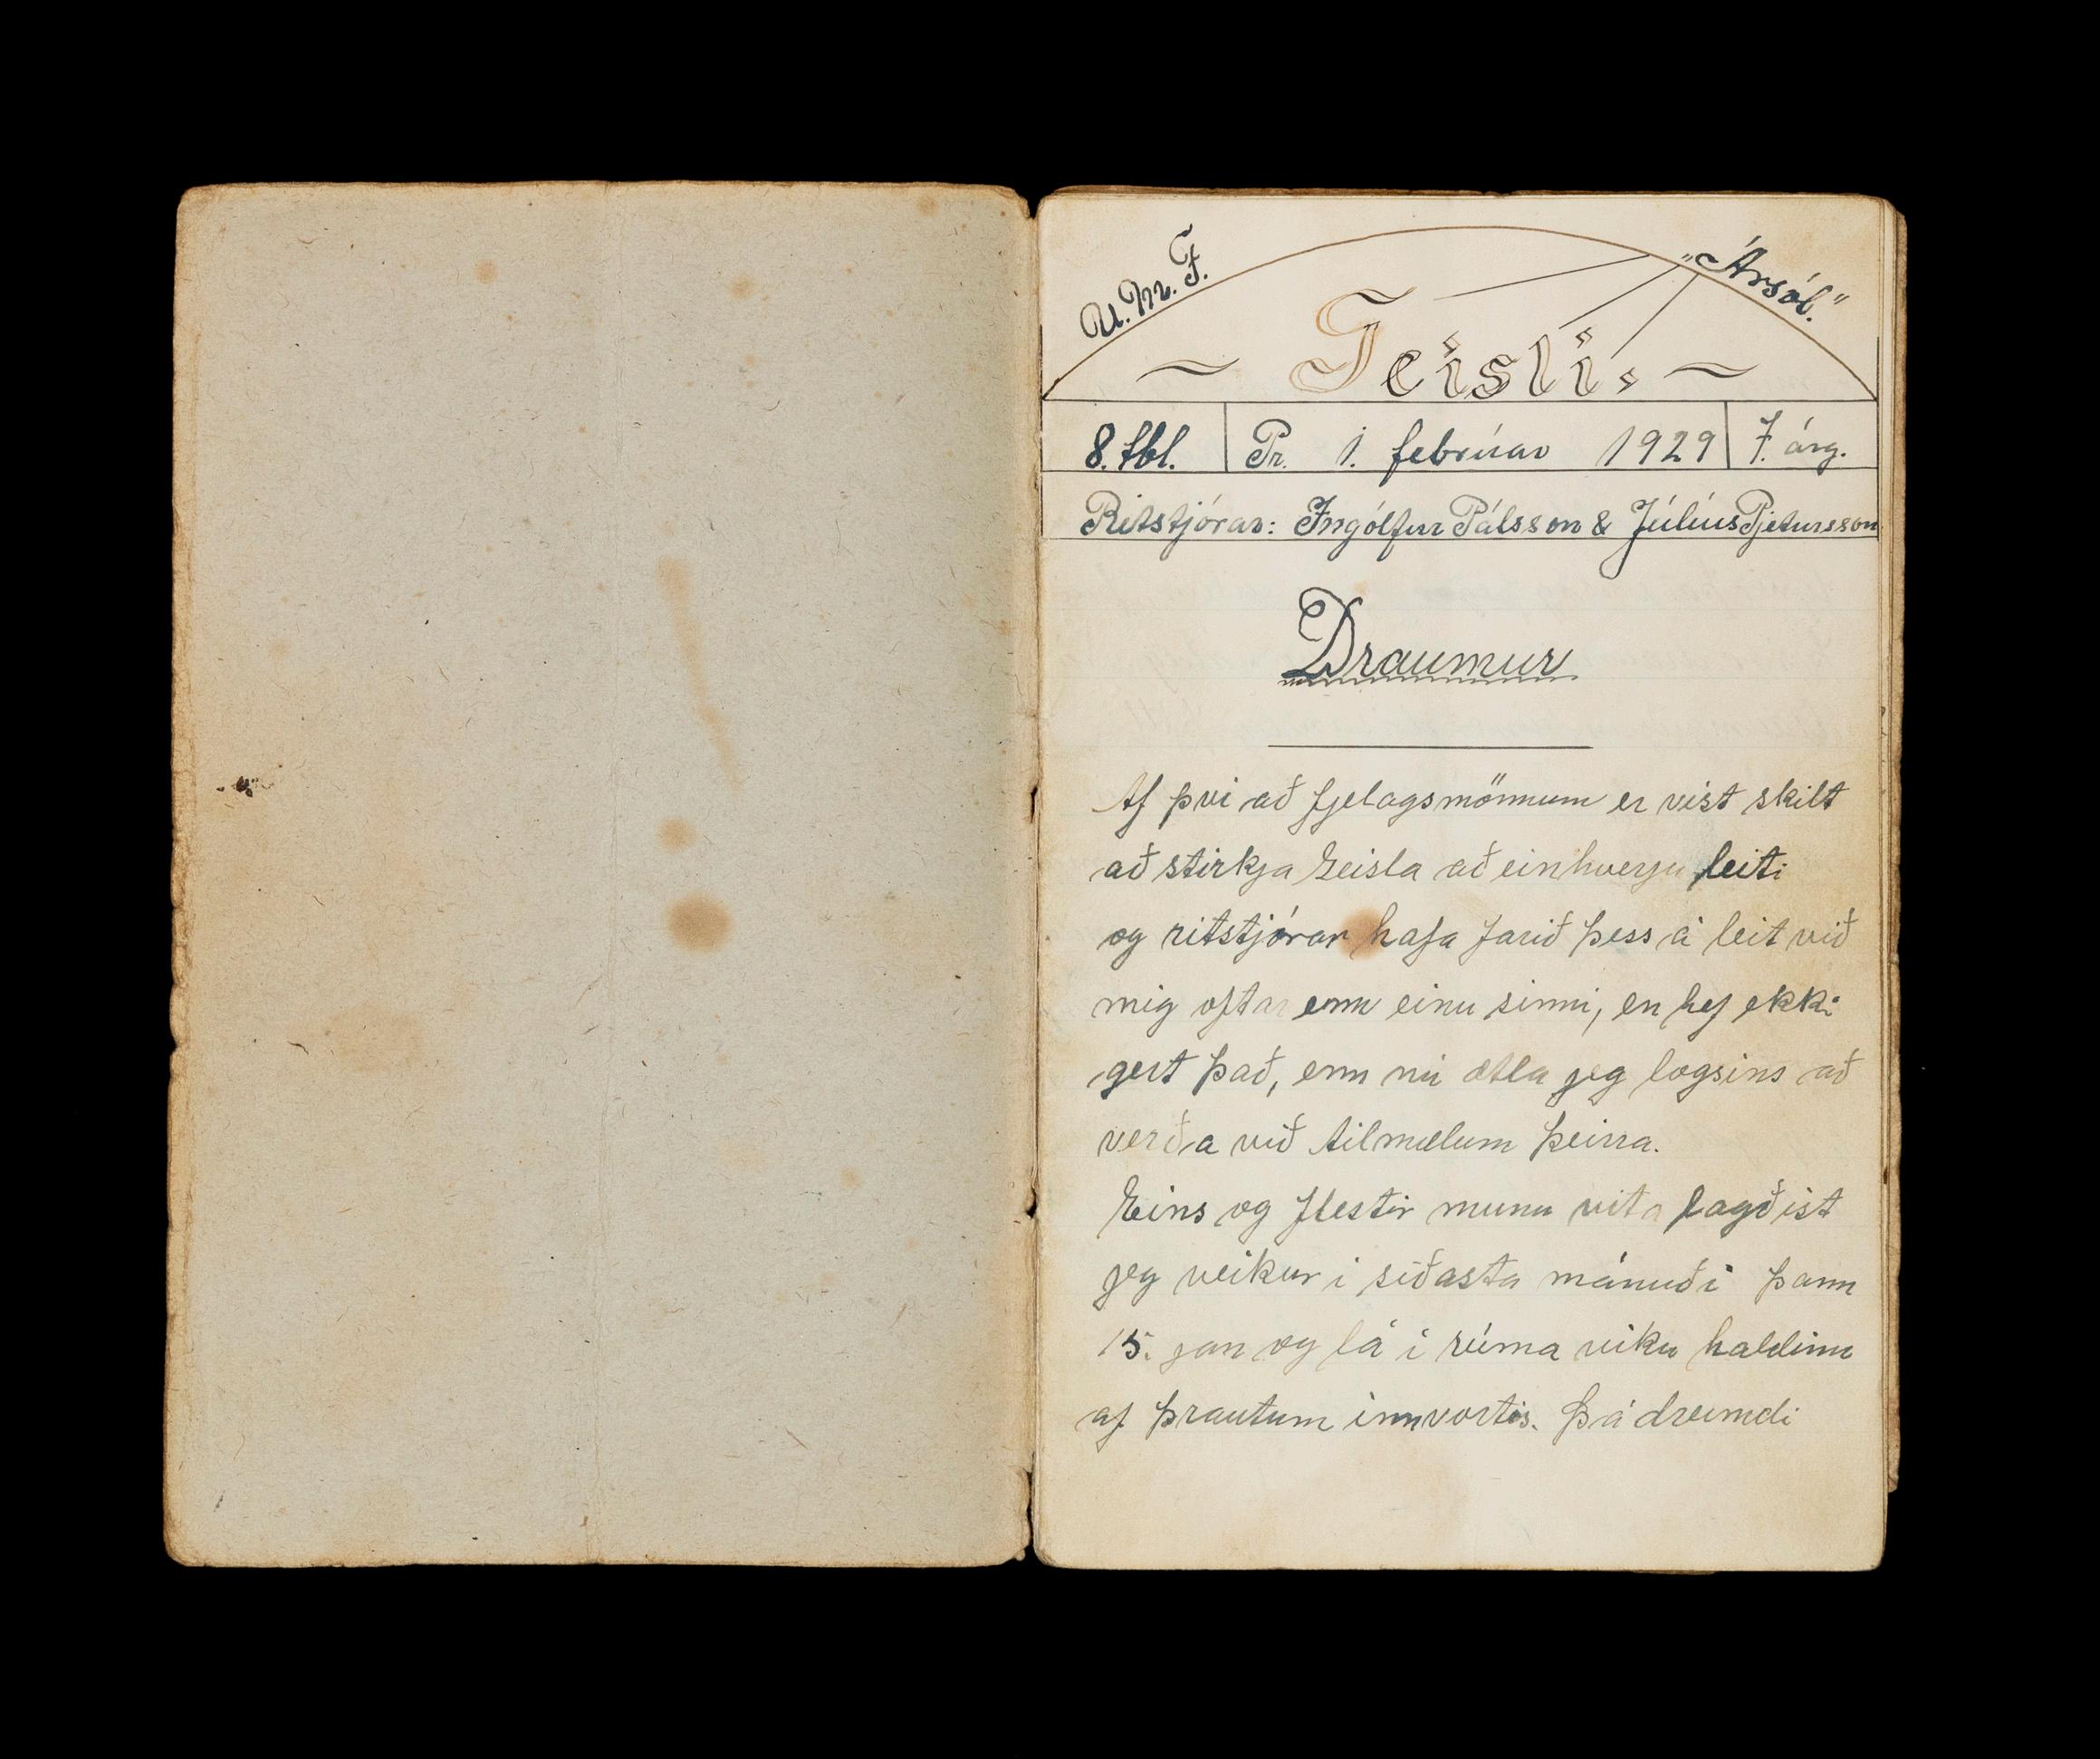 U.M.F. „Ársól."
~ Geisli. ~
8. tbl. Pr. 1. febrúar 1929 7. árg.
Ritstjórar: Ingólfur Pálsson & Júlíus Pjetursson
Draumur
Af þvi að fjelagsmönnum er vist skilt
að stirkja Geisla að einhverju leiti
og ritstjórar hafa farið þess á leit við
mig oftar enn einu sinni, en hef ekki
gert það, enn nú ætla jeg logsins að
verða við tilmælum þeirra.
Eins og flestir munu vita lagðist
jeg veikur i síðasta mánuði þann
15. jan og lá í rúma viku haldinn
af þrautum innvortis. Þá dreimdi